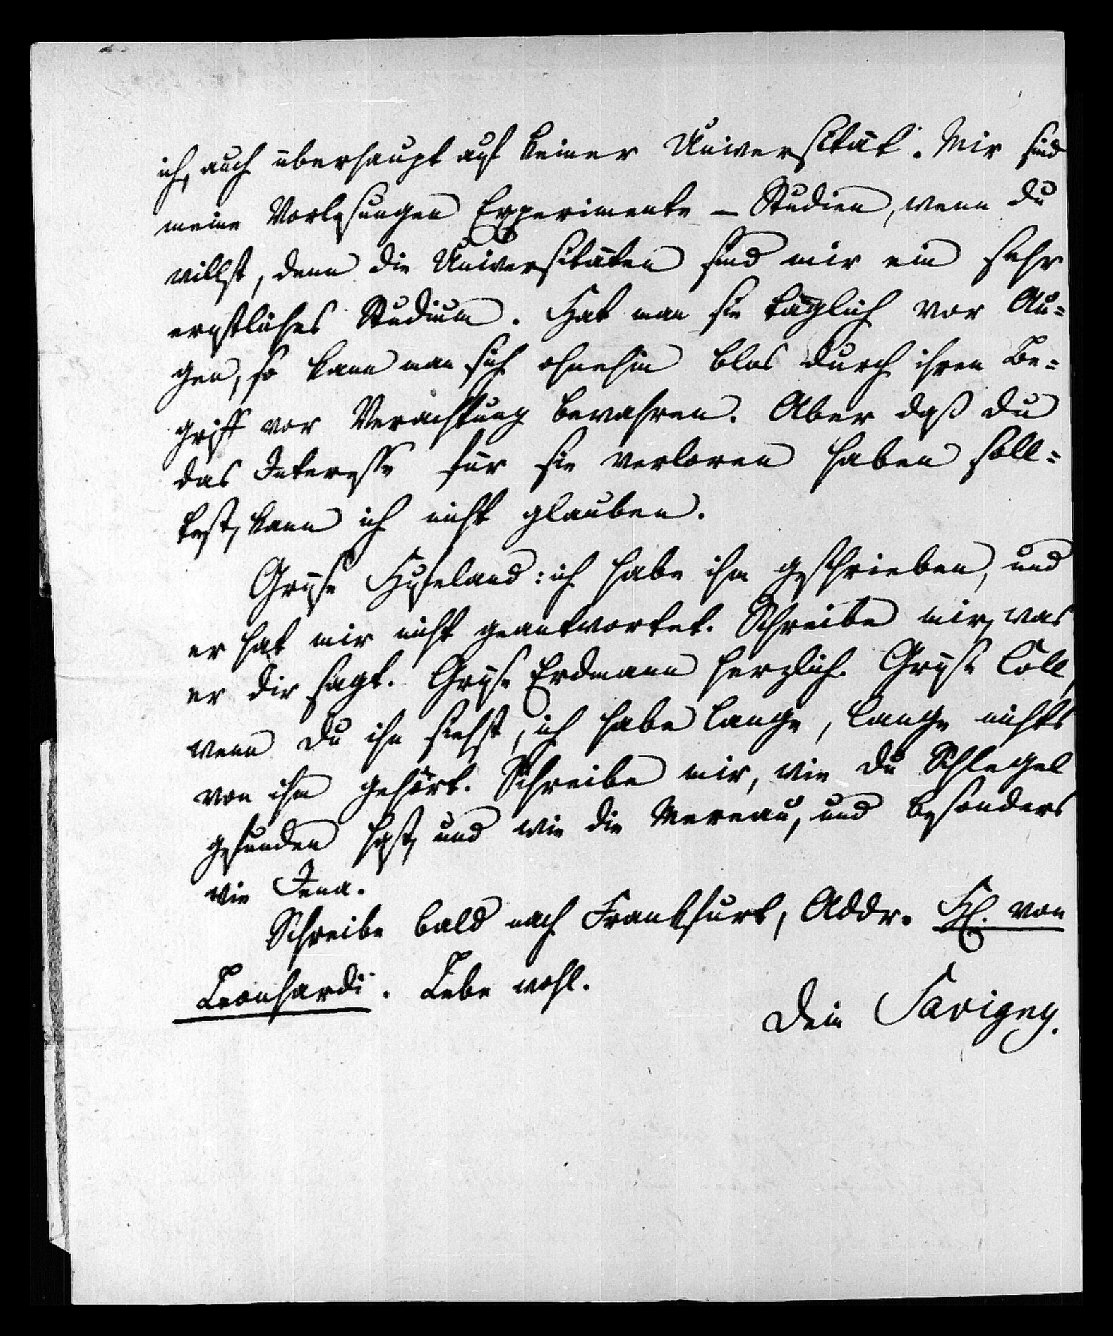 ich, auch überhaupt auf keiner Universität. Mir sind
meine Vorlesungen Experimente – Studien, wenn du
willst, denn die Universitäten sind mir ein sehr
ernstliches Studium. Hat man sie täglich vor Au=
gen, so kann man sich ohnehin blos durch ihren Be=
griff vor Verachtung bewahren. Aber daß du
das Interesse für sie verloren haben soll=
test, kann ich nicht glauben.
Grüse Hufeland: ich habe ihm geschrieben, und
er hat mir nicht geantwortet. Schreibe mir, was
er dir sagt. Grüse Erdmann herzlich. Grüse Coll,
wenn du ihn siehst, ich habe lange, lange nichts
von ihm gehört. Schreibe mir, wie du Schlegel
gefunden hast, und wie die Mereau, und besonders
wie Jena.
Schreibe bald nach Frankfurt, Addr. H. von
Leonhardi. Lebe wohl.
Dein Savigny.